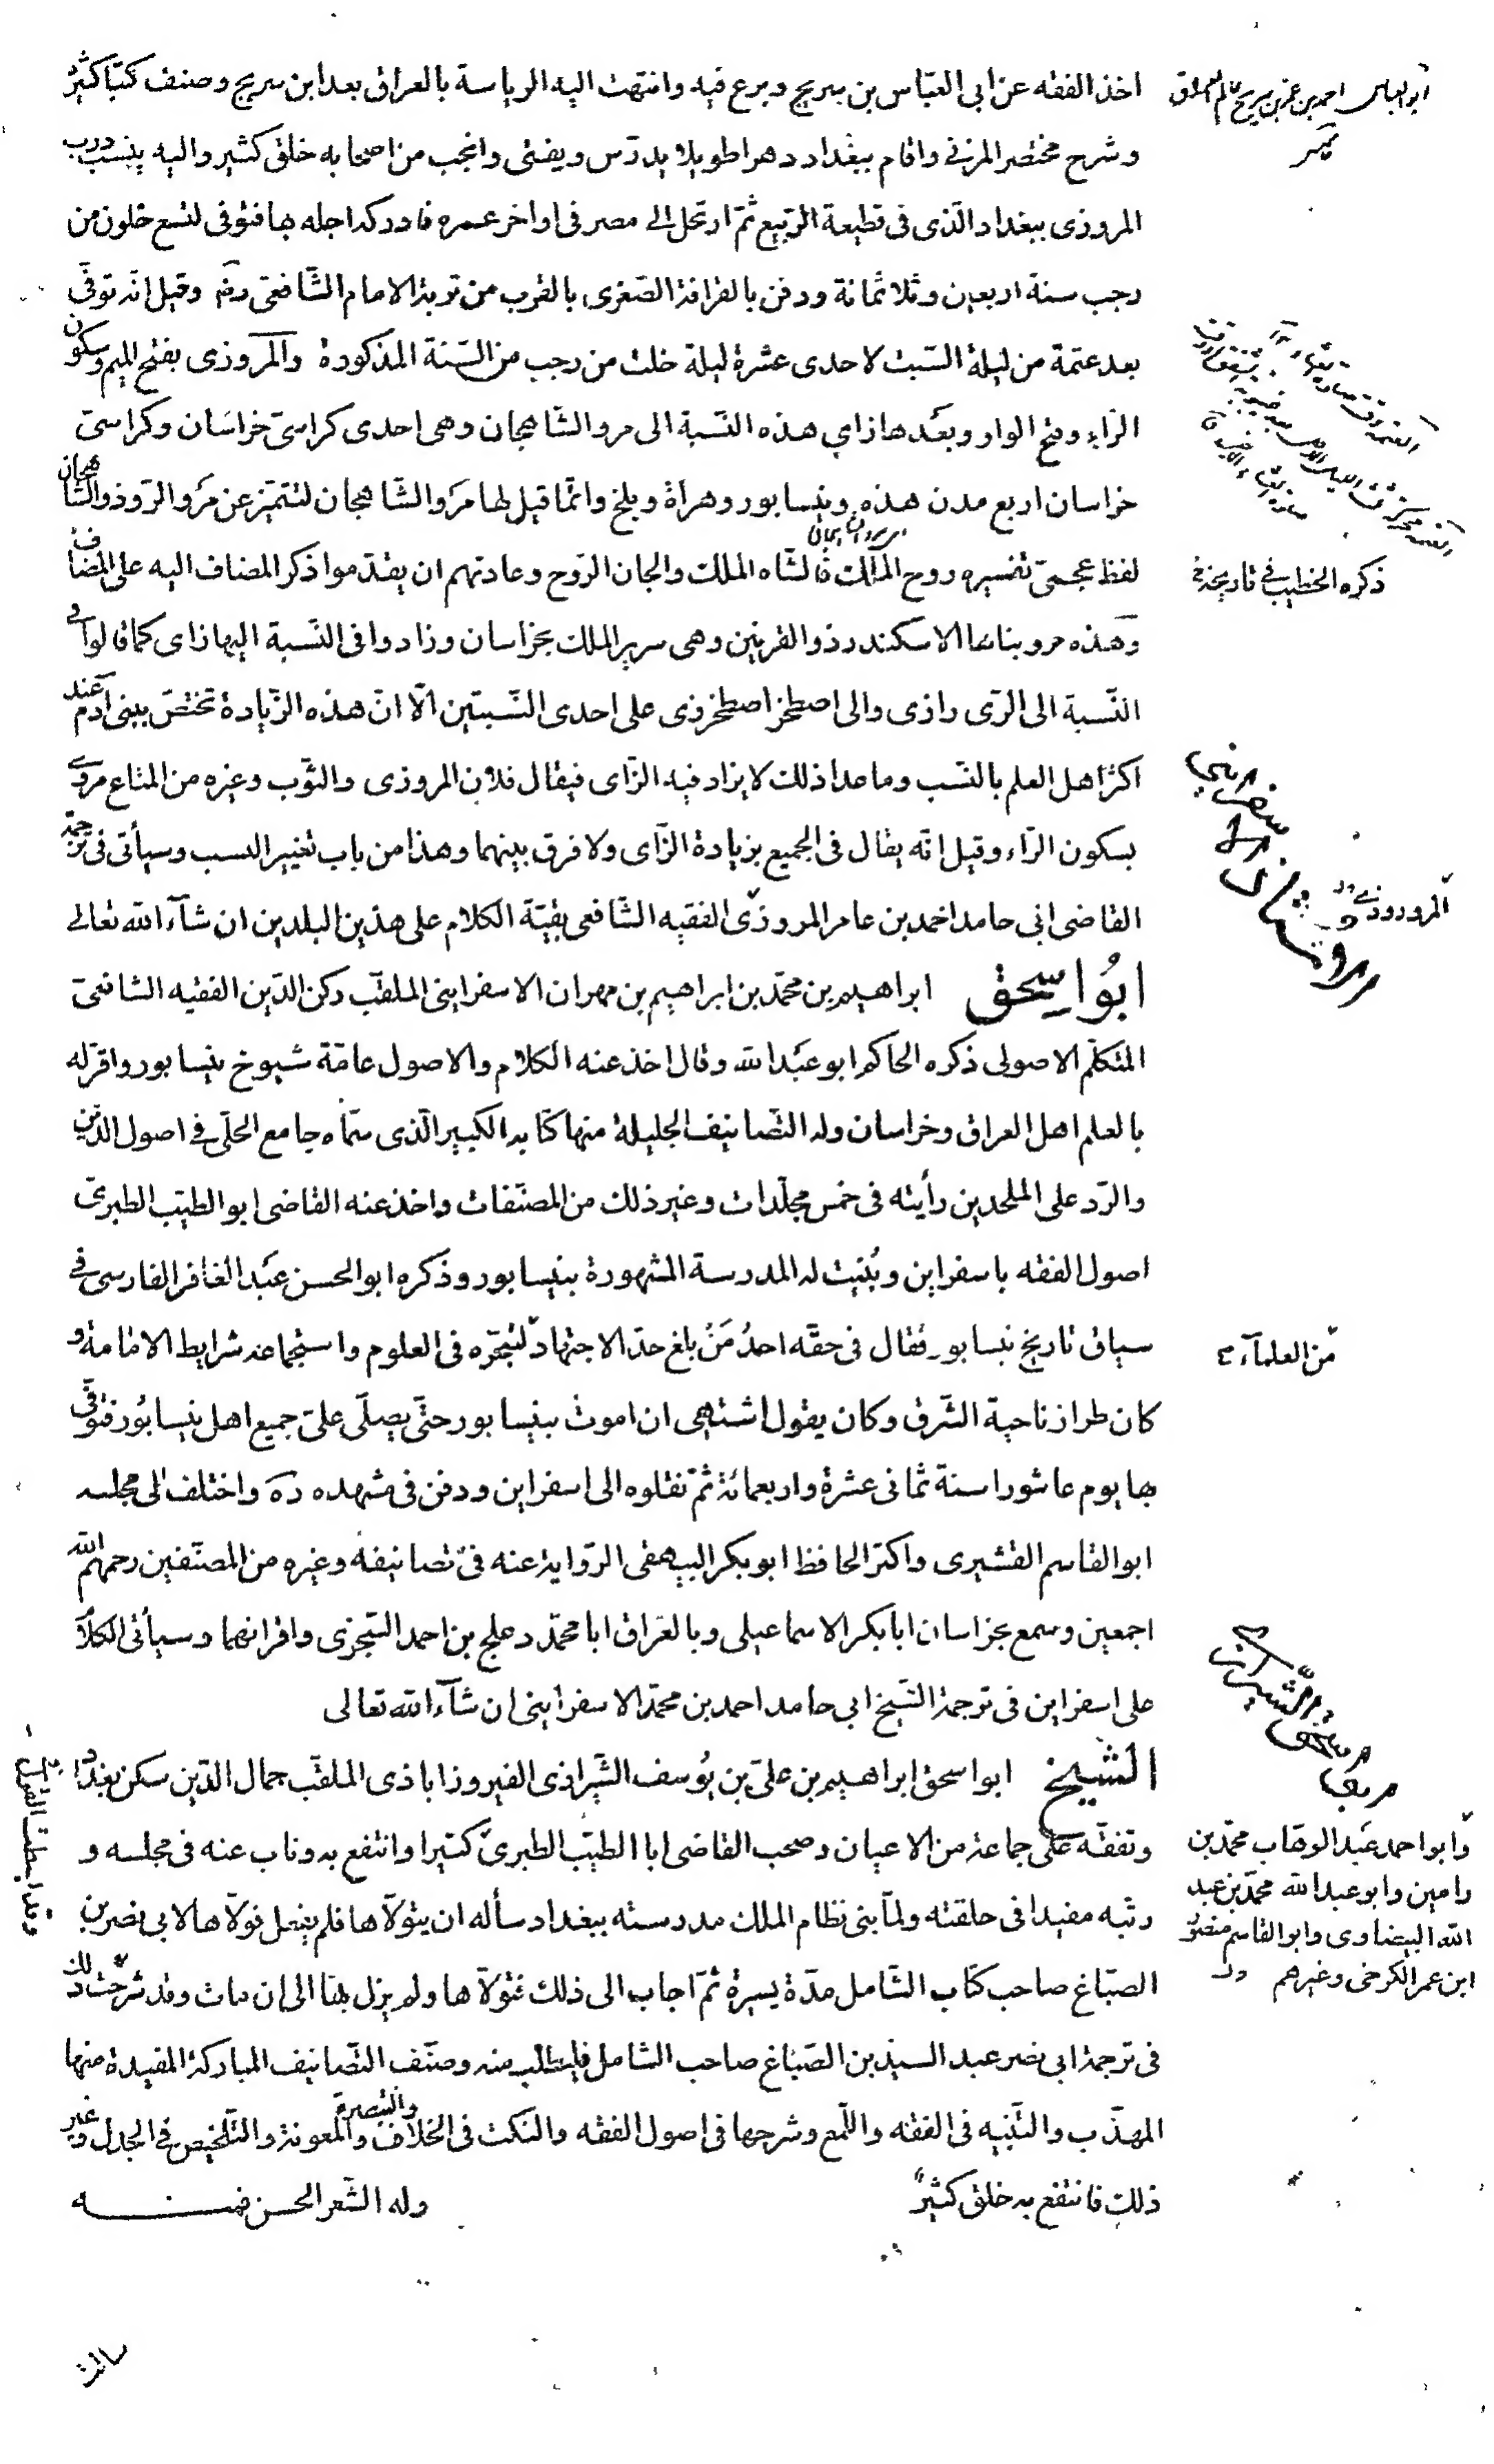 اخذ الفقه عن ابى العبّاس بن سريج وبرع فيه وانتهت اليه الرياسة بالعراق بعد ابن سريج وصنف كتبا كثيرة
وشرح مختصر المزنى واقام ببغداد دهرا طويلا يدرّس ويفتى وانجب من اصحابه خلق كثير واليه ينسب درب
المروزى ببغداد الّذى فى قطيعة الرّبيع ثمّ ارتحل الى مصر فى اواخر عمره فادركه اجله بها فتوفى لتسع خلون من
رجب سنة اربعين وثلاثمائة ودفن بالقرافة الصّغرى بالقرب من تربة الامام الشّافعى رضه وقيل انّه توفّى
بعد عتمة من ليلة السّبت لاحدى عشرة ليلة خلت من رجب من السّنة المذكورة والمروزى بفتح الميم وسكون
الرّاء وفتح الواو وبعدها زاى هذه النّسبة الى مرو الشّاهجان وهى احدى كراسىّ خراسان وكراسىّ
خراسان اربع مدن هذه ونيسابور وهراة وبلخ وانّما قيل لها مرو الشّاهجان لتتميّز عن مرو الرّوذ والشاهجان
لفظ عجمىّ تفسيره روح الملك فالشّاه الملك والجان الرّوح وعادتهم ان يقدّموا ذكر المضاف اليه على المضاف
وهذه مرو بناها الاسكندر ذو القرنين وهى سرير الملك بخراسان وزادوا فى النّسبة اليها زاى كما قالوا فى
النّسبة الى الرّى رازى والى اصطخر اصطخرزى على احدى النّسبتين الّا انّ هذه الزّيادة تختصّ ببنى آدم عند
اكثر اهل العلم بالنّسب وما عدا ذلك لا يزاد فيه الزّاى فيقال فلان المروزى والثّوب وغيره من المتاع مروىّ
بسكون الرّاء وقيل انّه يقال فى الجميع بزيادة الزّاى ولا فرق بينهما وهذا من باب تغيير النسب وسيأتى فى ترجمة
القاضى ابى حامد احمد بن عامر المروزّى الفقيه الشّافعى بقيّة الكلام على هذين البلدين ان شآء الله تعالى
ابُو اسحٰق ابراهيم بن محمّد بن ابراهيم بن مهران الاسفراينى الملقّب ركن الدّين الفقيه الشافعىّ
المتكلّم الاصولى ذكره الحاكم ابو عبد الله وقال اخذ عنه الكلام والاصول عامّة شيوخ نيسابور واقرّ له
بالعلم اهل العراق وخراسان وله التّصانيف الجليلة منها كتابه الكبير الّذى سمّاه جامع الحلّى فى اصول الدّين
والرّد على الملحدين رأيته فى خمس مجلّدات وغير ذلك من المصنّفات واخذ عنه القاضى ابو الطيّب الطبرىّ
اصول الفقه باسفراين وبُنيت له المدرسة المشهورة بنيسابور وذكره ابو الحسن عبد الغافر الفارسى فى
سياق تاريخ نيسابور فقال فى حقّه احدُ مَن بلغ حدّ الاجتهاد لتبحّره فى العلوم واستجماعه شرايط الامامة و
كان طراز ناحية الشّرق وكان يقول اشتهى ان اموت بنيسابور حتّى يصلّى علىّ جميع اهل نيسابور فتوفّى
بها يوم عاشورا سنة ثمانى عشرة واربعمائة ثمّ نقلوه الى اسفراين ودفن فى مشهده ره واختلف الى مجلسه
ابو القاسم القشيرى واكثر الحافظ ابو بكر البيهقى الرّواية عنه فى تصانيفه وغيره من المصنّفين رحمهم الله
اجمعين وسمع بخراسان ابا بكر الاسماعيلى وبالعراق ابا محمّد دعلج بن احمد السّجزى واقرانهما وسيأتى الكلام
على اسفراين فى ترجمة الشّيخ ابى حامد احمد بن محمّد الاسفراينى ان شآء الله تعالى
الشّيخ ابو اسحق ابراهيم بن علىّ بن يُوسف الشّيرازى الفيروزاباذى الملقّب جمال الدّين سكن بغداد
وتفقّه على جماعة من الاعيان وصحب القاضى ابا الطيّب الطبرىّ كثيرا وانتفع به وناب عنه فى مجلسه و
رتّبه مفيدا فى حلقته ولمّا بنى نظام الملك مدرسته ببغداد سأله ان يتولّاها فلم يفعل فولّاها لابى نصر بن
الصبّاغ صاحب كتاب الشّامل مدّة يسيرة ثمّ اجاب الى ذلك فتولّاها ولم يزل بها الى ان مات وقد شرحت ذلك
فى ترجمة ابى نصر عبد السيد بن الصّباغ صاحب الشامل فليطلب منه وصنّف التّصانيف المباركة المفيدة منها
المهذّب والتّنبيه فى الفقه واللّمع وشرحها فى اصول الفقه والنّكت فى الخلاف والتّبصرة والمعونة والتّلخيص فى الجدل وغير
ذلك فانتفع به خلق كثير وله الشّعر الحسن فمنه
ابو العباس احمد بن عمر بن سريج
ذكره الخطيب فى تاريخه
المروروذى
من العلمآء
وابو احمد عبد الوهّاب محمّد بن
رامين وابو عبد الله محمّد بن عبد
الله البيضاوى وابو القاسم منصور
ابن عمر الكرخى وغيرهم